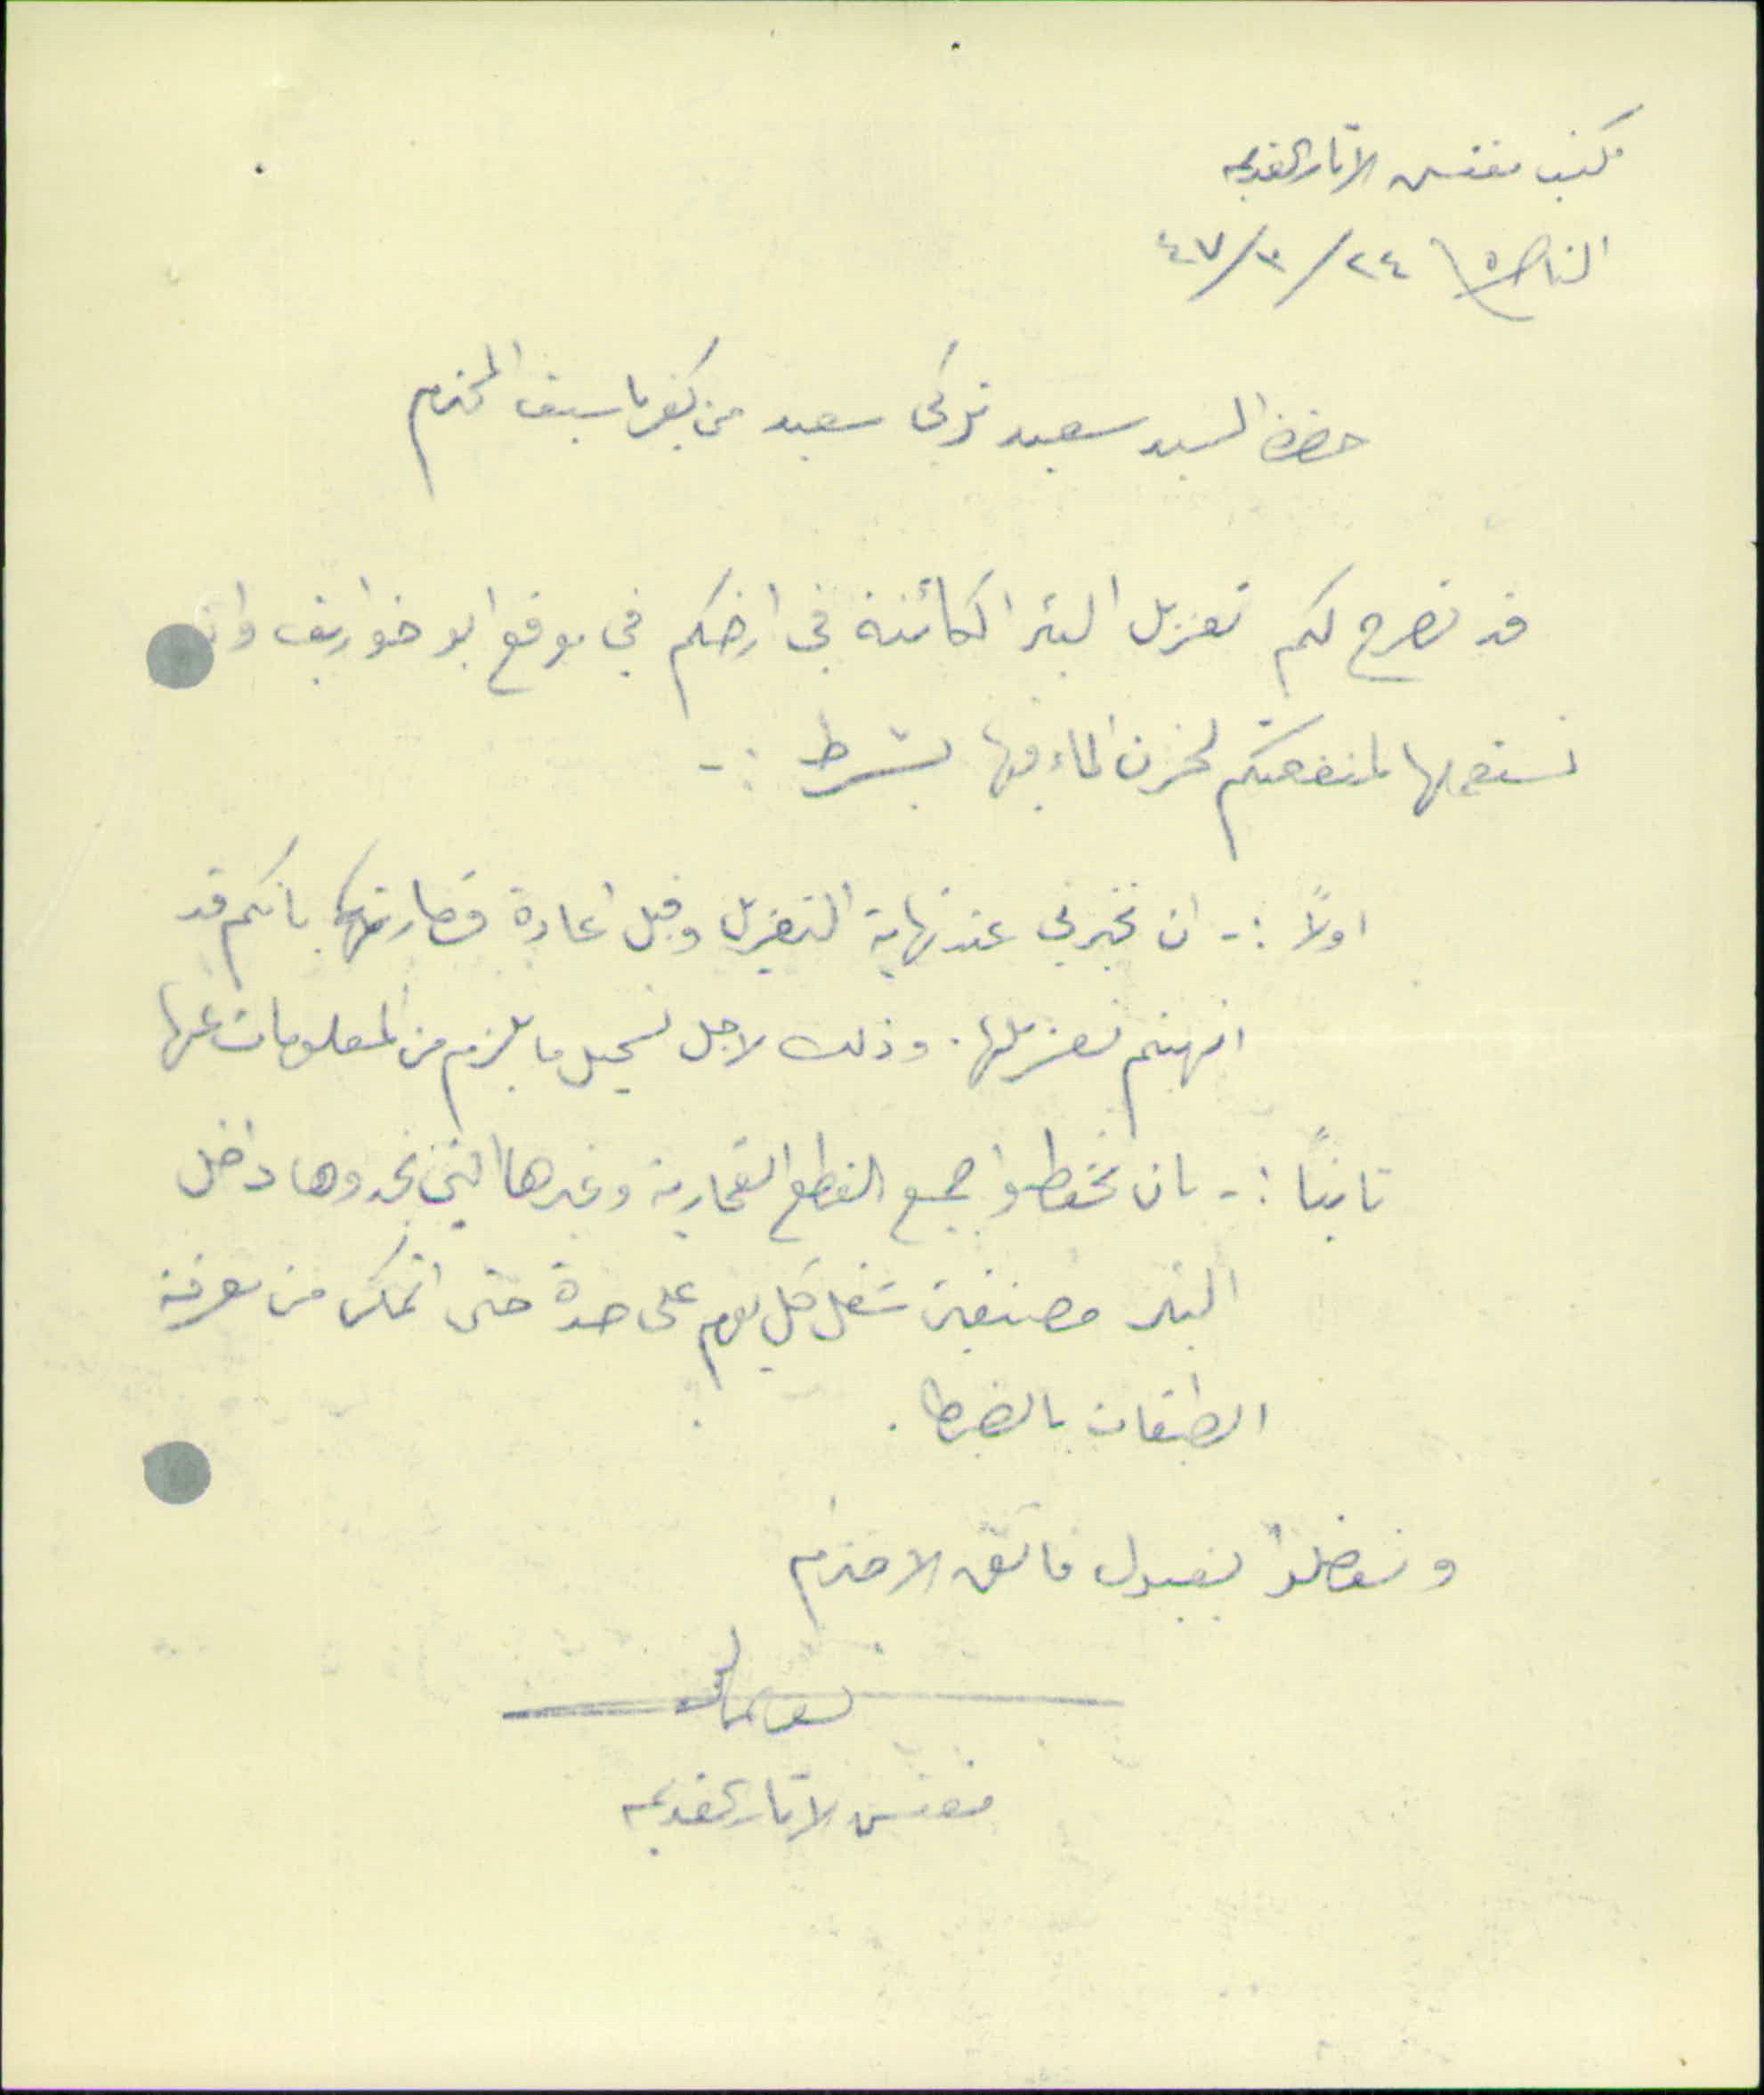 مكتب مفتش الاثار القديمه
الناصرة ٢٤/٣/٤٧
حضرة السيد سعيد تركي سعيد من كفر ياسيف المحترم
قد نصرح لكم تعزيل البئر الكائنة في ارضكم في موقع ابو خواريف وان
تستعملها لمنفعتكم لخزن الماء فيها بشرط :-
اولاً :- ان تخبرني عند نهاية التعزيل وقبل اعادة قصارتها بانكم قد
انهيتم تعزيلها. وذلك لاجل تسجيل ما يلزم من المعلومات عنها
ثانياً :- بان تحفظوا جميع القطع الفخارية وغيرها التي تجدوها داخل
البئر مصنفين شغل كل يوم على حدة حتى اتمكن من معرفة
الطبقات بالضبط.
وتفضلوا بقبول فائق الاحترام
مفتش الاثار القديمه